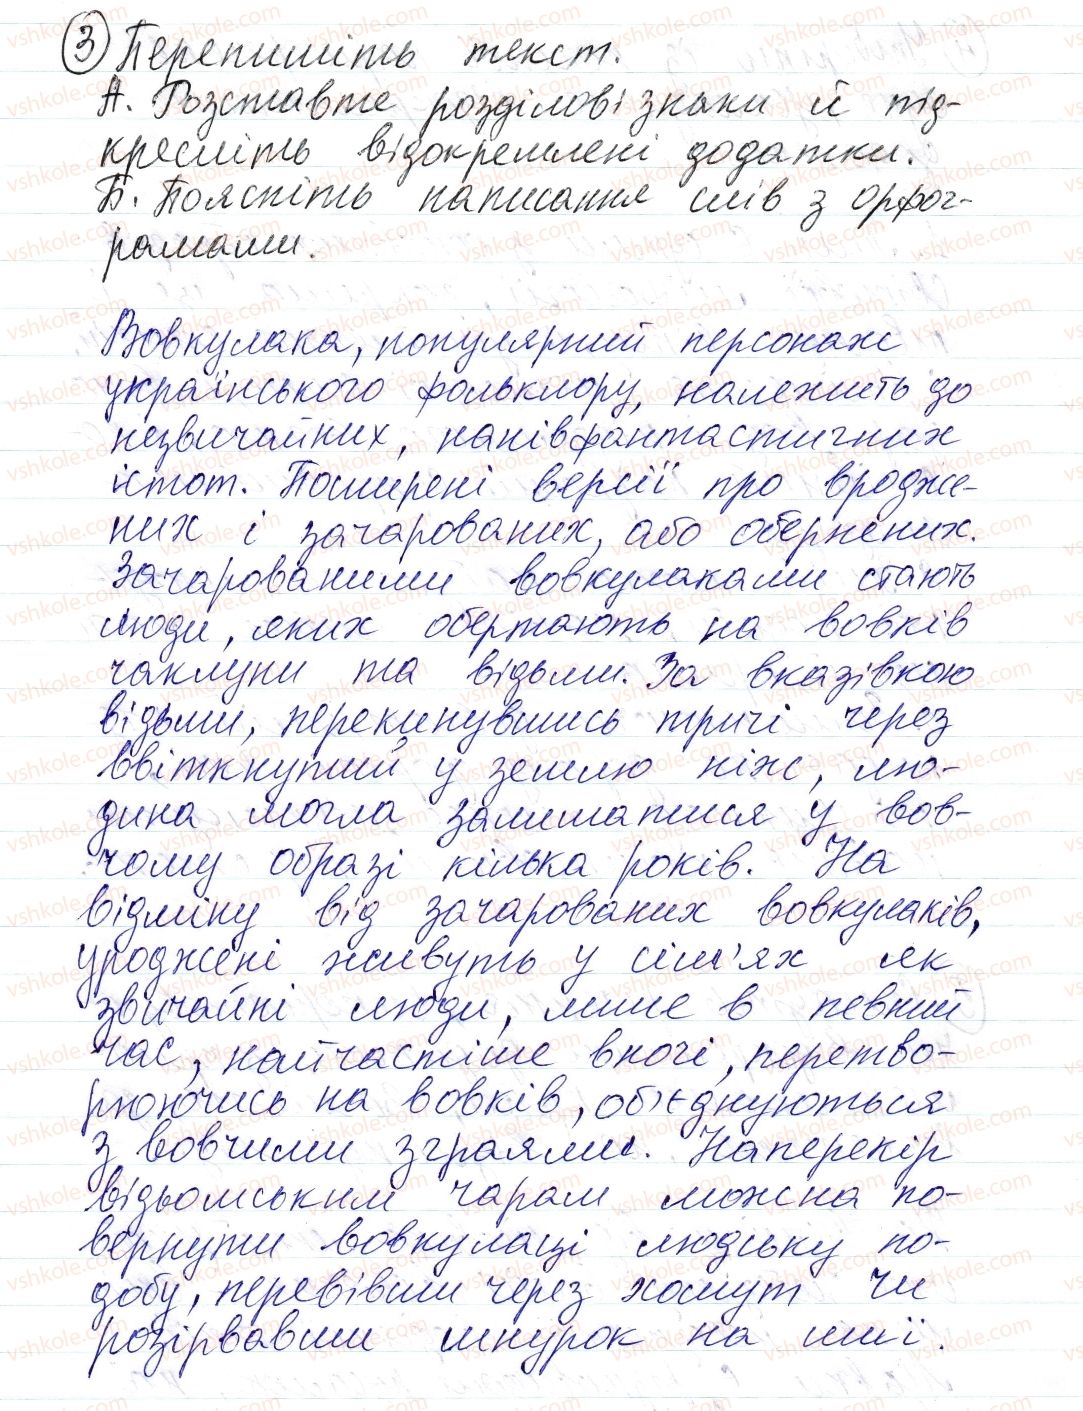 3 Перепишіть текст.
А. Розставте розділові знаки й під-
кресліть відокремлені додатки.
Б. Поясніть написання слів з орфог-
рамами.
Вовкулака, популярний персонаж
українського фольклору, належить до
незвичайних, напівфантастичних
істот. Поширені версії про вродже-
них і зачарованих, або обернених.
Зачарованими вовкулаками стають
люди, яких обертають на вовків
чаклуни та відьми. За вказівкою
відьми, перекинувшись тричі через
ввіткнутий у землю ніж, лю-
дина могла залишатися у вов-
чому образі кілька років. На
відміну від зачарованих вовкулаків,
уроджені живуть у сім'ях як
звичайні люди, лише в певний
час, найчастіше вночі, перетво-
рюючись на вовків, об'єднуються
з вовчими зграями. Наперекір
відьомським чарам можна по-
вернути вовкулаці людську по-
добу, перевівши через хомут чи
розірвавши шнурок на шиї.